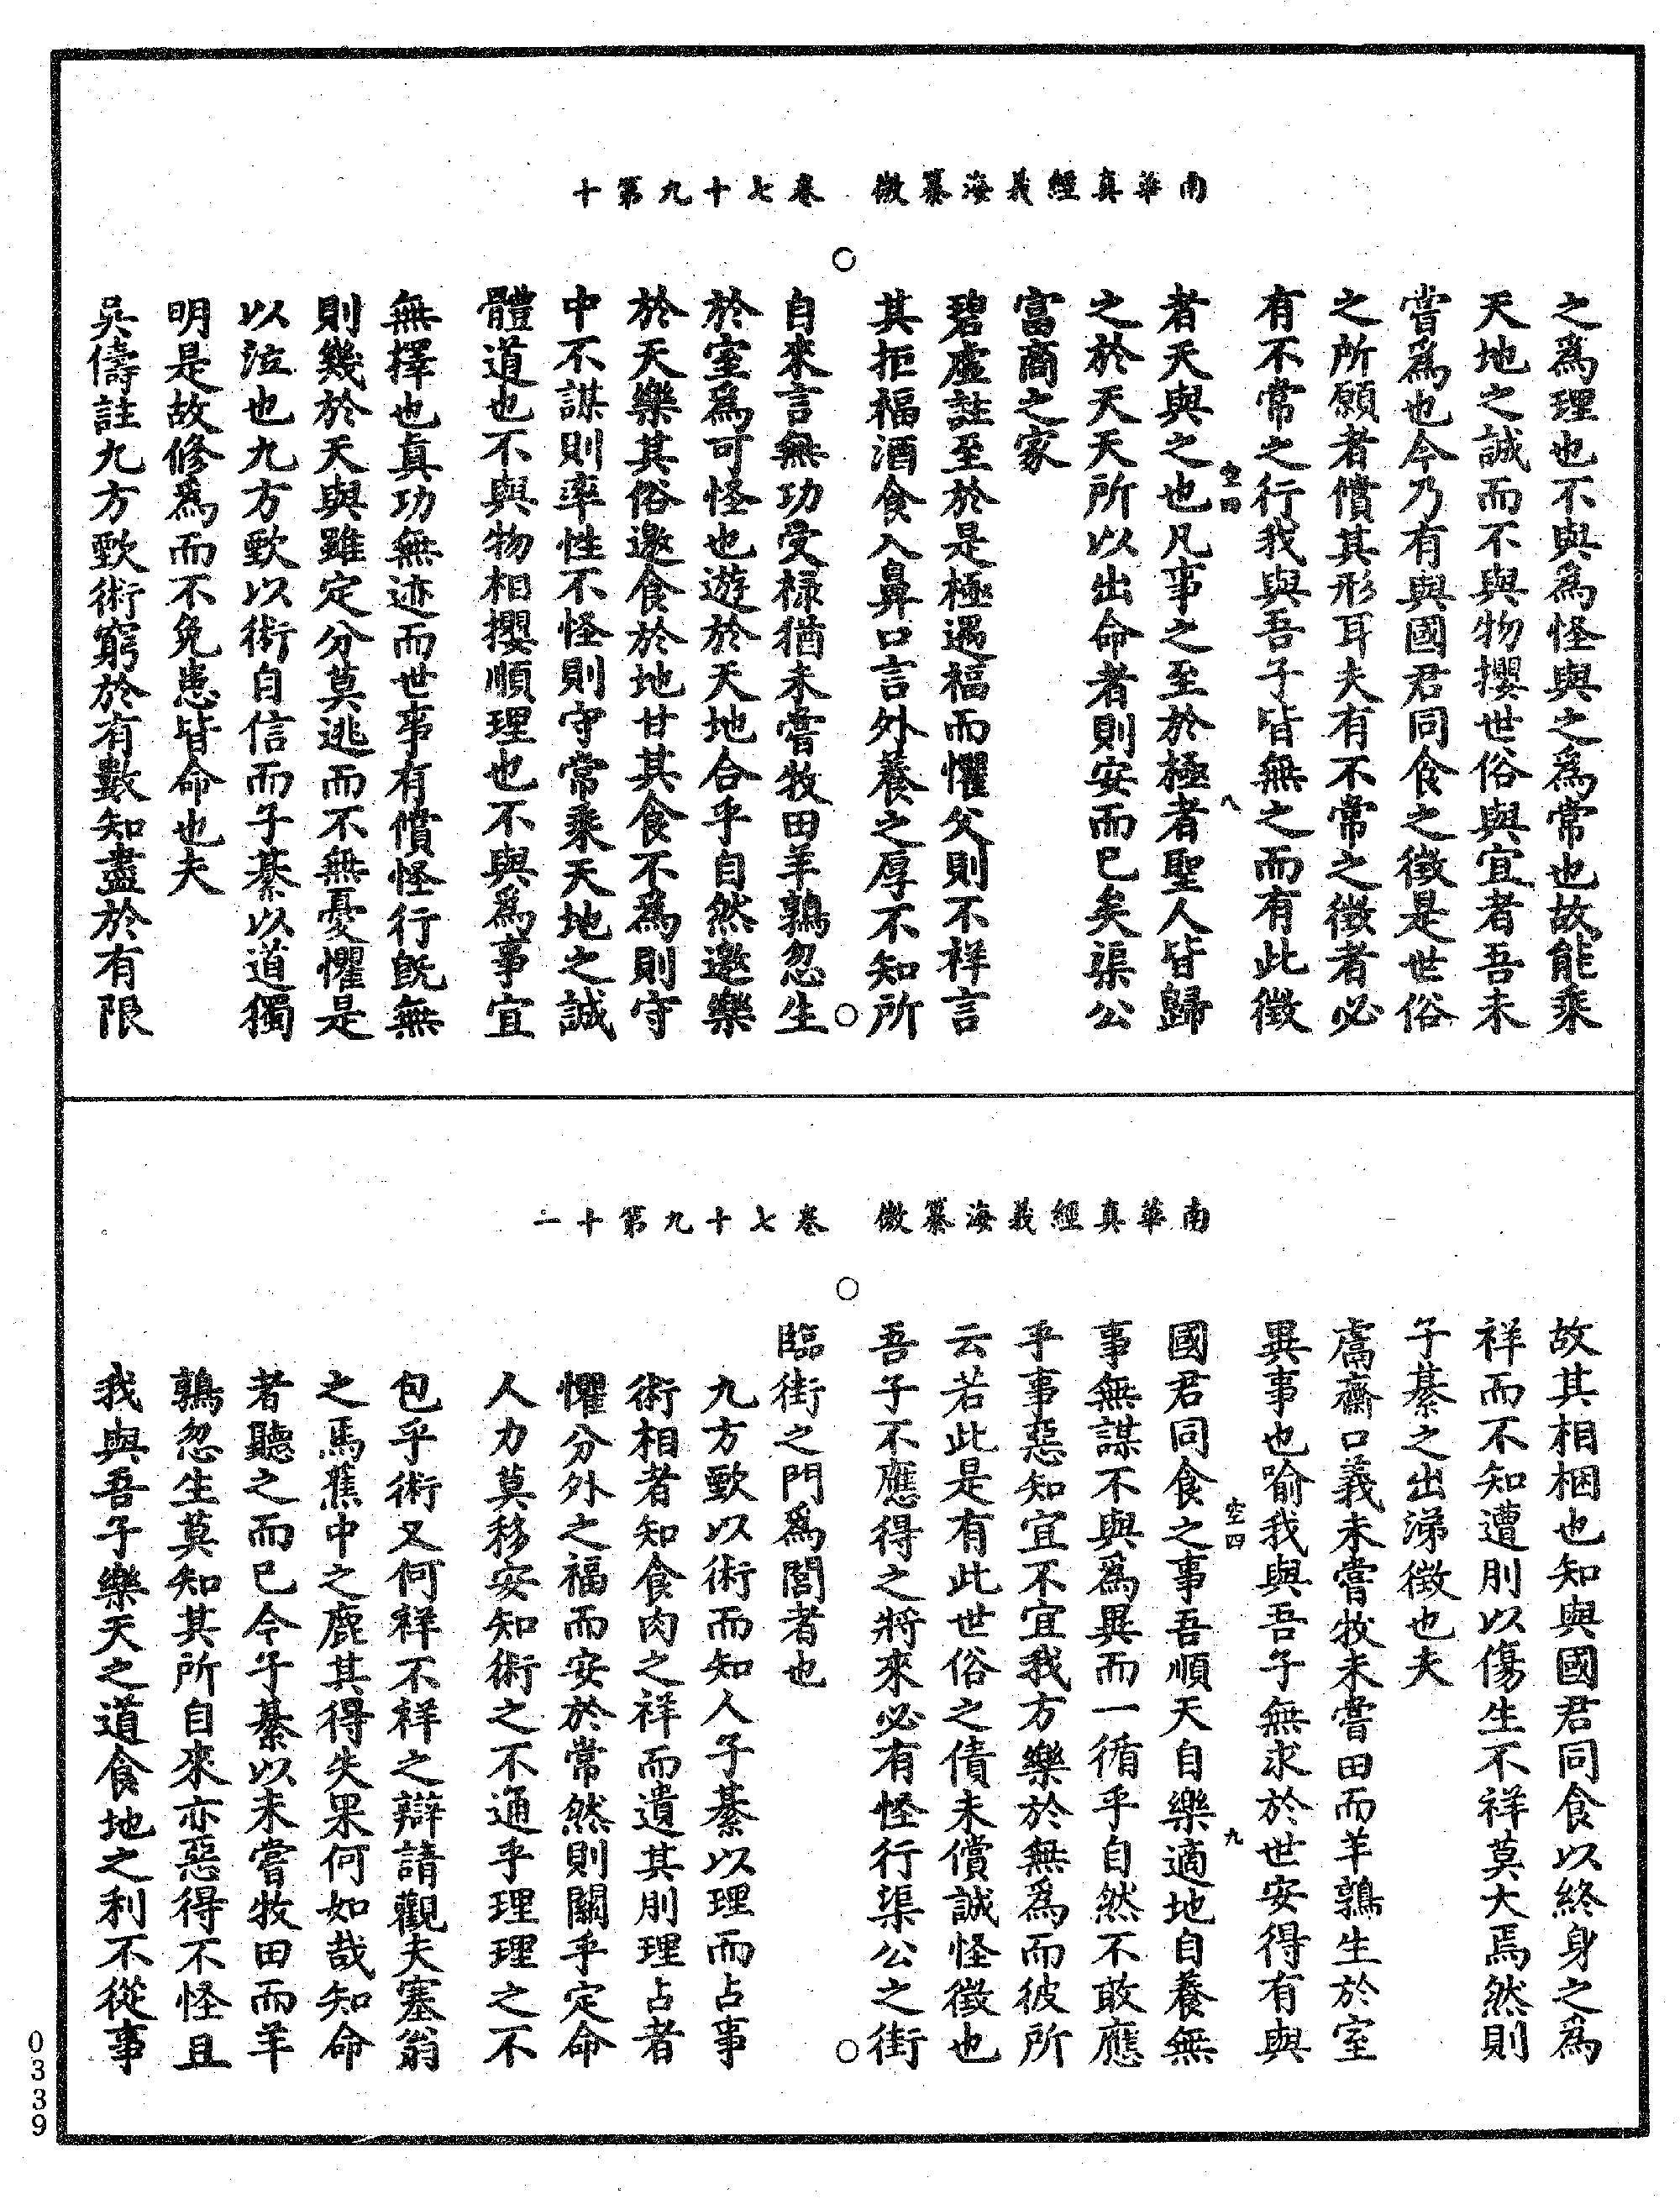 南華真經義海纂微　卷七十九第十
之爲理也不與爲怪與之爲常也故能乘
天地之誠而不與物攖世俗與宜者吾未
嘗爲也今乃有與國君同食之徵是世俗
之所願者償其形耳夫有不常之徵者必
有不常之行我與吾子皆無之而有此徵
空四　八
者天與之也凡事之至於極者聖人皆歸
之於天天所以出命者則安而已矣渠公
富商之家
碧虛註至於是極遇福而懼父則不祥言
其拒福酒食入鼻口言外養之厚不知所
自來言無功受祿猶未嘗牧田羊鶉忽生
於室爲可怪也遊於天地合乎自然邀樂
於天樂其俗邀食於地甘其食不爲則守
中不謀則率性不怪則守常乘天地之誠
體道也不與物相攖順理也不與爲事宜
無擇也真功無迹而世事有償怪行旣無
則幾於天與雖定分莫逃而不無憂懼是
以泣也九方歅以術自信而子綦以道獨
明是故修爲而不免患皆命也夫
吳儔註九方歅術窮於有數知盡於有限
南華真經義海纂微　卷七十九第十一
故其相梱也知與國君同食以終身之爲
祥而不知遭刖以傷生不祥莫大焉然則
子綦之出涕徵也夫
鬳齋口義未嘗牧未嘗田而羊鶉生於室
異事也喻我與吾子無求於世安得有與
空四　九
國君同食之事吾順天自樂適地自養無
事無謀不與爲異而一循乎自然不敢應
乎事惡知宜不宜我方樂於無爲而彼所
云若此是有此世俗之債未償誠怪徵也
吾子不應得之將來必有怪行渠公之街
臨街之門爲閽者也
九方歅以術而知人子綦以理而占事
術相者知食肉之祥而遺其刖理占者
懼分外之福而安於常然則關乎定命
人力莫移安知術之不通乎理理之不
包乎術又何祥不祥之辯請觀夫塞翁
之馬蕉中之鹿其得失果何如哉知命
者聽之而已今子綦以未嘗牧田而羊
鶉忽生莫知其所自來亦惡得不怪且
我與吾子樂天之道食地之利不從事
0339